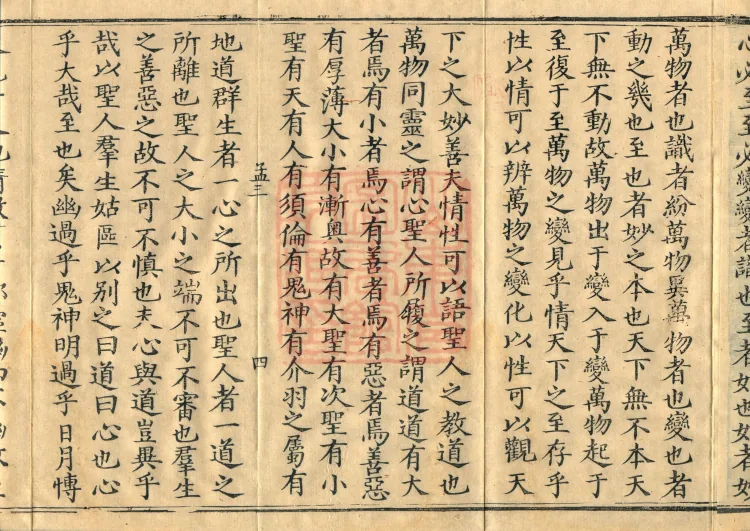 心必至至必變變者識也至者如也如者妙
萬物者也識者紛萬物異萬物者也變也者
動之幾也至也者妙之本也天下無不本天
下無不動故萬物出于變入于變萬物起于
至復于至萬物之變見乎情天下之至存乎
性以情可以辨萬物之變化以性可以觀天
下之大妙善夫情性可以語聖人之教道也
萬物同靈之謂心聖人所履之謂道道有大
者焉有小者焉心有善者焉有惡者焉善惡
有厚薄大小有漸奧故有大聖有次聖有小
聖有天有人有須倫有鬼神有介羽之屬有
孟三
四
地道群生者一心之所出也聖人者一道之
所離也聖人之大小之端不可不審也羣生
之善惡之故不可不慎也夫心與道豈異乎
哉以聖人羣生姑區以別之曰道曰心也心
乎大哉至也矣幽過乎鬼神明過乎日月博